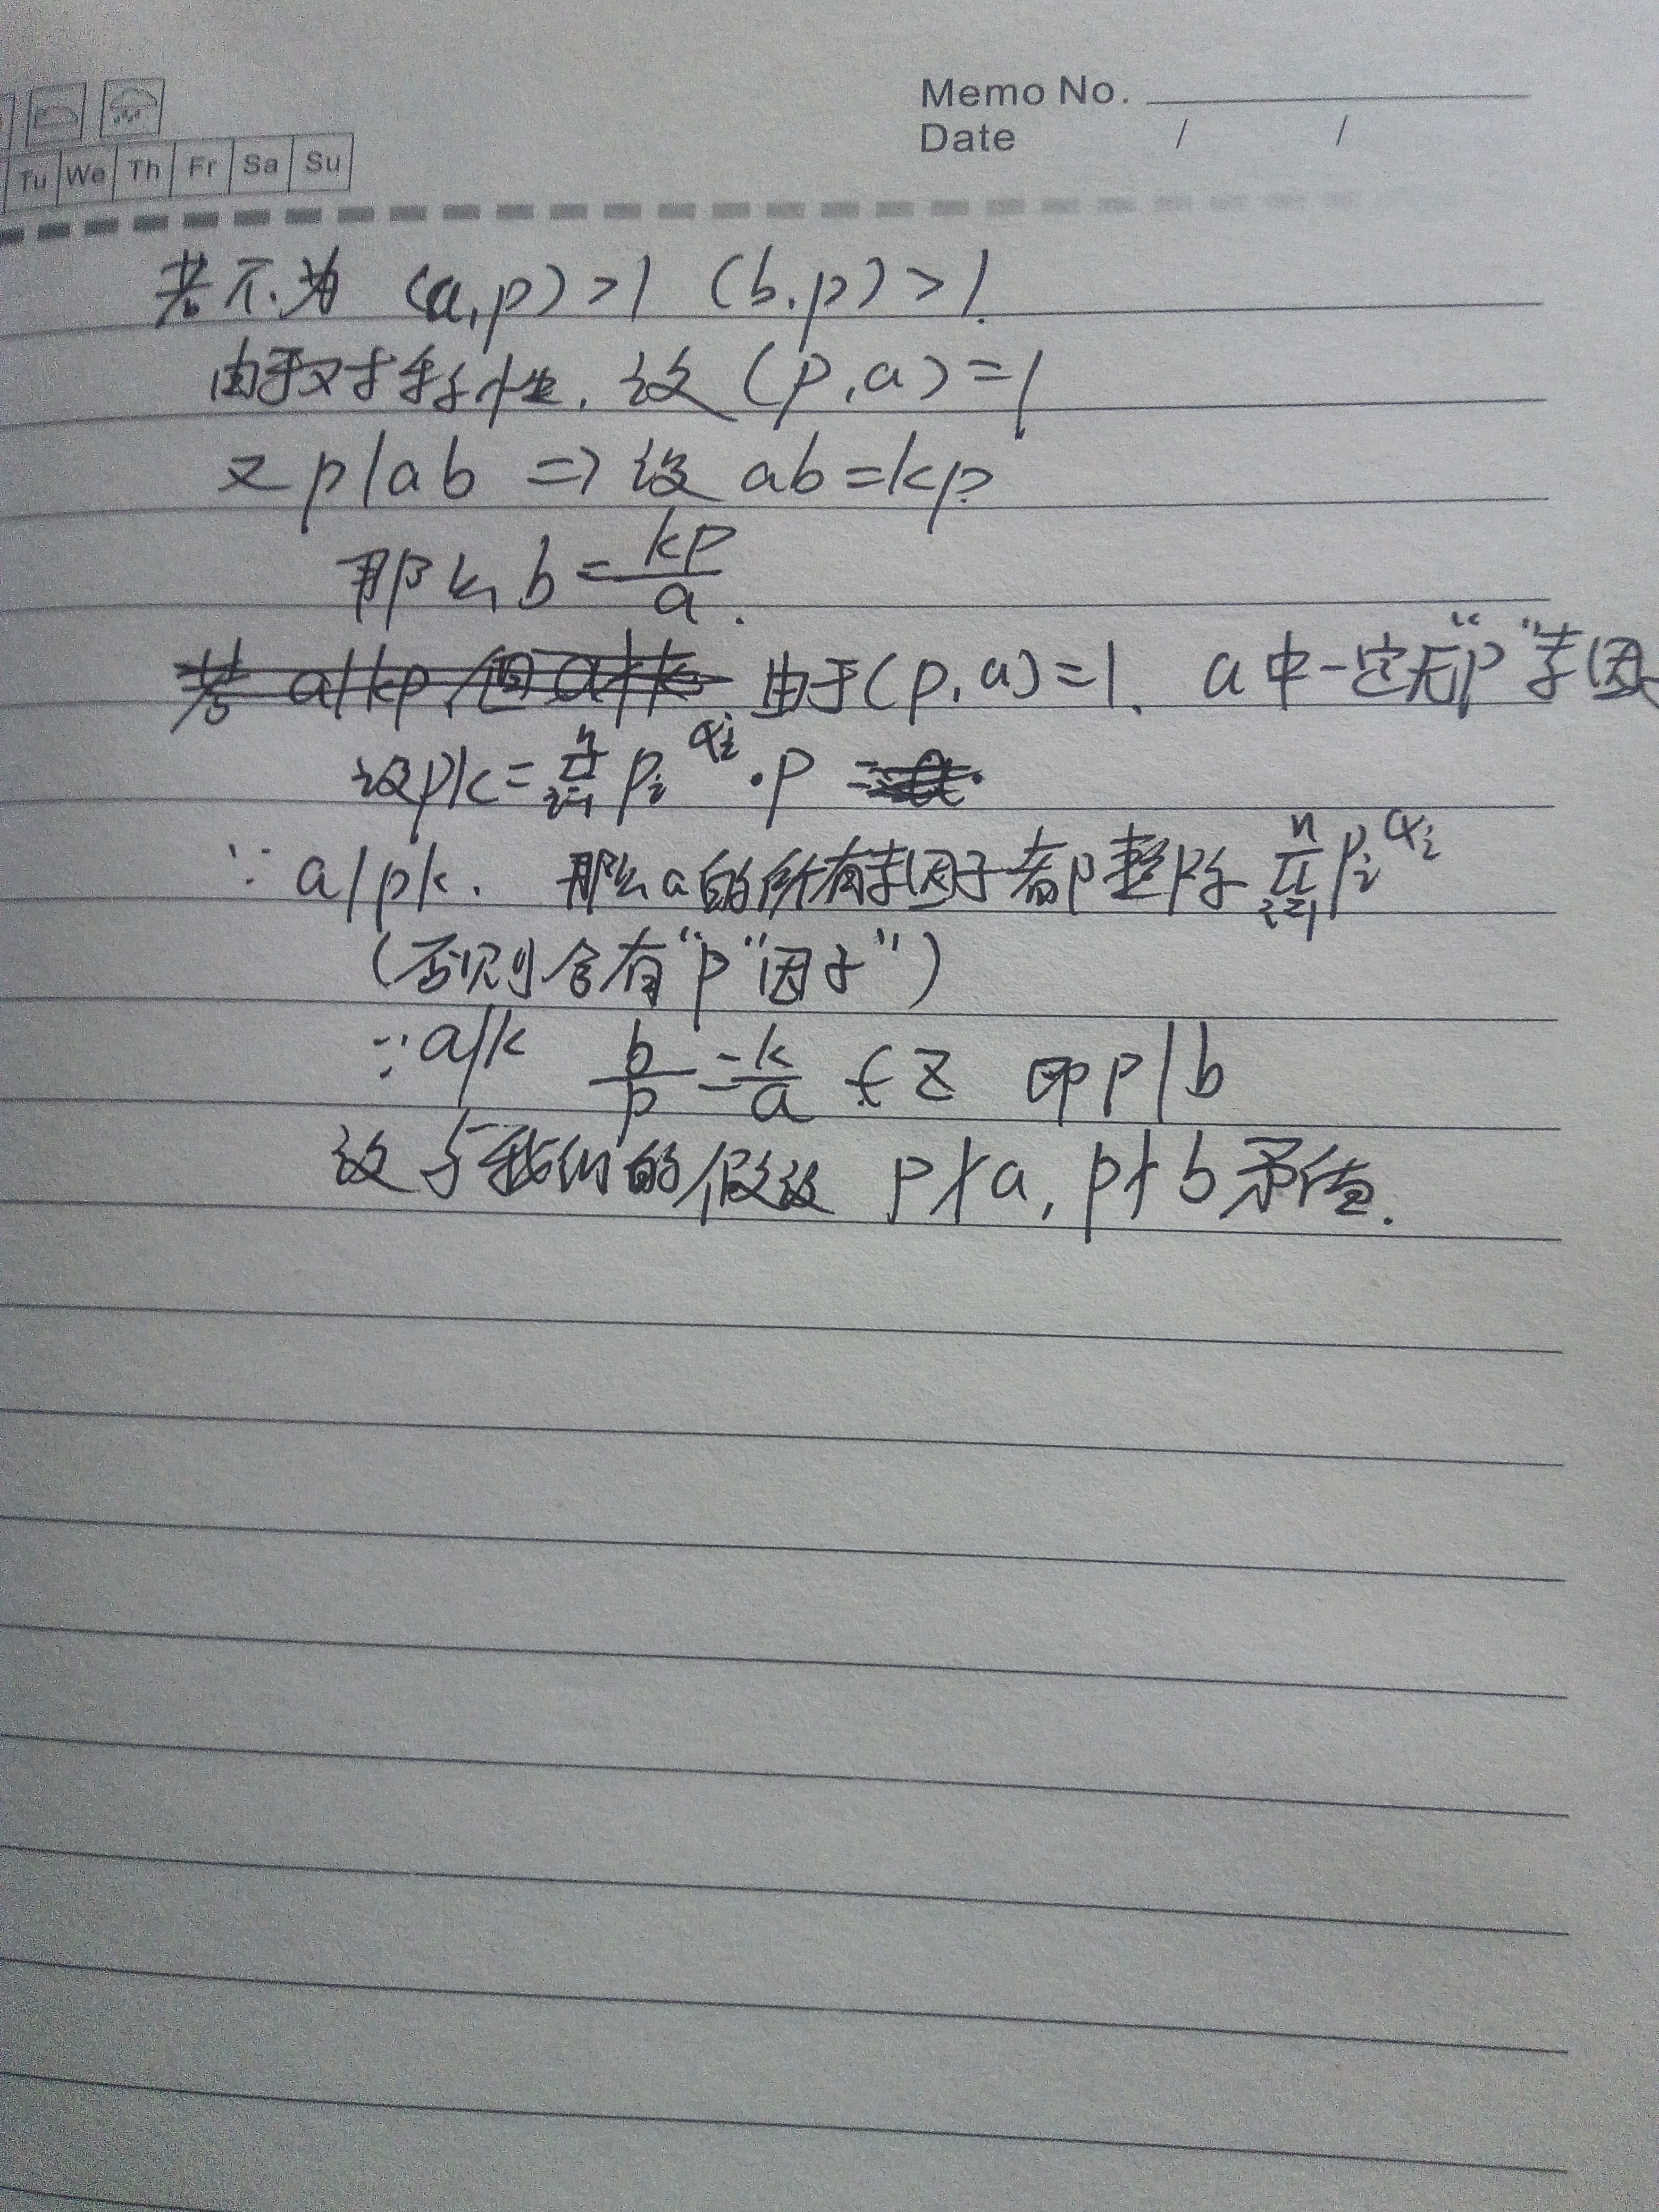 Memo No.
Date / /
Tu We Th Fr Sa Su
若不为 (a,p)>1 (b,p)>1.
由于对称性, 设 (p,a)=1
又 p|ab ⇒ 设 ab=kp
那么 b=\frac{kp}{a}.
由于(p,a)=1, a中一定无"p"素因
设pk=\prod_{i=1}^{n} p_i^{α_i}·p
∵ a|pk. 那么a的所有素因子都整除 \prod_{i=1}^{n} p_i^{α_i}
(否则含有"p"因子")
∵ a|k \frac{b}{p}=\frac{k}{a}∈Z 即p|b
故与我们的假设 p∤a, p∤b矛盾.